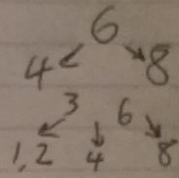 6
4 8
3 6
1,2 4 8